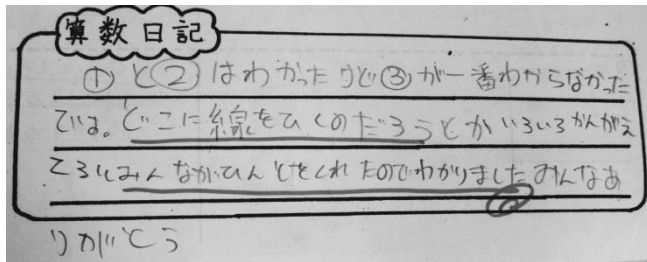 算数日記
①と②はわかったけど③が一番わからなかった
です。どこに線をひくのだろうとかいろいろかんがえ
てるとみんながひんとをくれたのでわかりましたみんなあ
りがとう